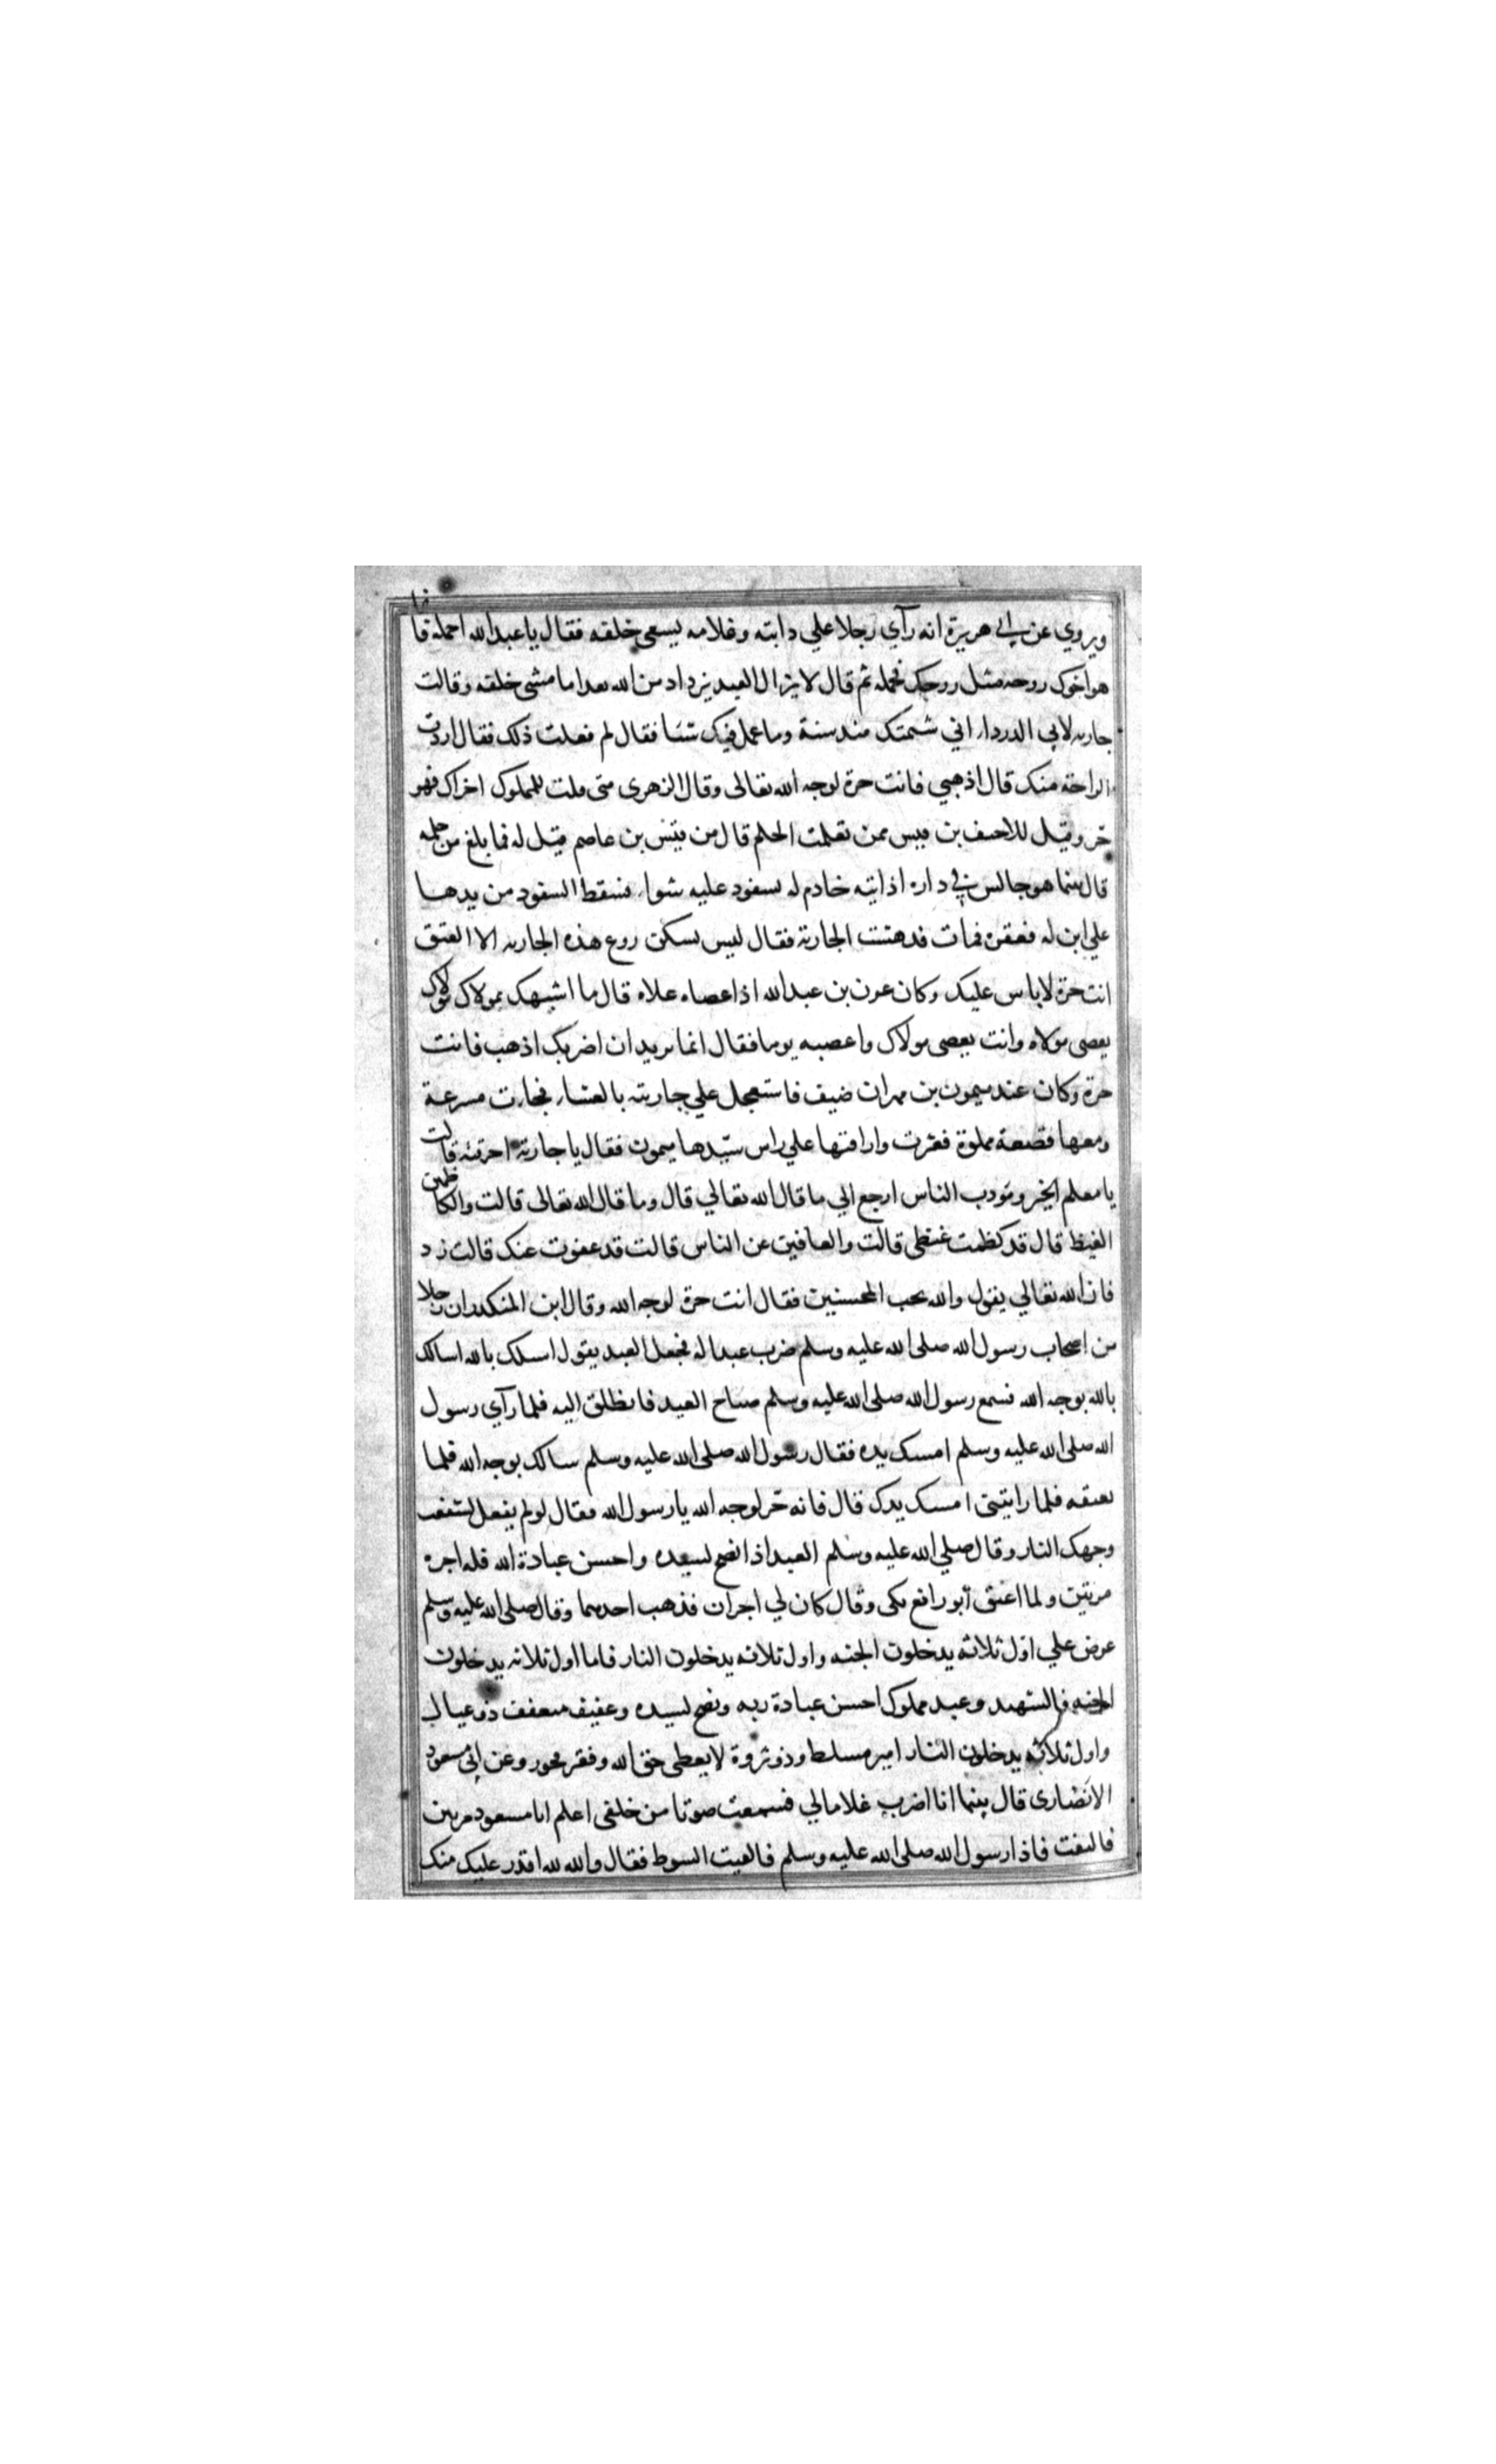 ويروي عن ابي هريرة انه رآي رجلا علي دابته وغلامه يسعي خلقه فقال يا عبد الله احمله فانما
هو اخوك روحه مثل روحك فحمله ثم قال لا يزال العبد يزداد من الله بعدا ما مشي خلقه وقالت
جاريه لابي الدرداء اني شمتك منذ سنة وما عمل فيك شيا فقال لم فعلت ذلك فقال اردت
الراحة منك قال اذهبي فانت حرة لوجه الله تعالي وقال الزهري متي قلت للمملوك اخزاك فهو
حر وقيل للاحنف بن قيس ممن تعلمت الحلم قال من قيس بن عاصم قيل له فما بلغ من حلمه
قال بينما هو جالس في داره اذ اتيته خادم له بسفود عليه شواء فسقط السفود من يدها
علي ابن له فعقره فمات فدهشت الجارية فقال ليس يسكن روع هذه الجاريه الا العتق
انت حرة لا باس عليك وكان عون بن عبد الله اذا عصاه غلاه قال ما اشبهك بمولاك مولاك
يعصي مولاه وانت تعصي مولاك واغضبه يوما فقال انما تريد ان اضربك اذهب فانت
حرة وكان عند ميمون بن مهران ضيف فاستعجل علي جاريته بالعشاء فجاءت مسرعة
ومعها قصعة مملوة فعثرت واراقتها علي راس سيّدها ميمون فقال يا جارية احرقته قالت
يا معلم الخير ومودب الناس ارجع الي ما قال الله تعالي قال وما قال الله تعالي قالت والكاظمين
الغيظ قال قد كظمت غيظي قالت والعافين عن الناس قالت قد عفوت عنك قالت زد
فان الله تعالي يقول والله يحب المحسنين فقال انت حرة لوجه الله وقال ابن المنكدر ان رجلا
من اصحاب رسول الله صلى الله عليه وسلم ضرب عبدا له فجعل العبد يقول اسلك بالله اسالك
بالله بوجه الله فسمع رسول الله صلى الله عليه وسلم صياح العبد فانطلق اليه فلما رآي رسول
الله صلى الله عليه وسلم امسك يده فقال رسول الله صلى الله عليه وسلم سالك بوجه الله فلما
تعتقه فلما رايتني امسك يدك قال فانه حر لوجه الله يا رسول الله فقال لو لم يفعل لسفعت
وجهك النار وقال صلي الله عليه وسلم العبد اذا نصح لسيده واحسن عبادة الله فله اجره
مرتين ولما اعتق ابو رافع بكي وقال كان لي اجران فذهب احدهما وقال صلى الله عليه وسلم
عرض علي اوّل ثلاثة يدخلون الجنه واول ثلاثه يدخلون النار فاما اول ثلاثه يدخلون
الجنه فالشهيد وعبد مملوك احسن عبادة ربه ونصح لسيده وعفيف متعفف ذو عيال
واول ثلاثه يدخلون النار امير مسلط وذو ثروة لا يعطي حق الله وفقير فخور وعن ابي مسعود
الانصاري قال بينما انا اضرب غلاما لي فسمعت صوتا من خلفي اعلم ابا مسعود مرتين
فالتفت فاذا رسول الله صلى الله عليه وسلم فالقيت السوط فقال والله لله اقدر عليك منك